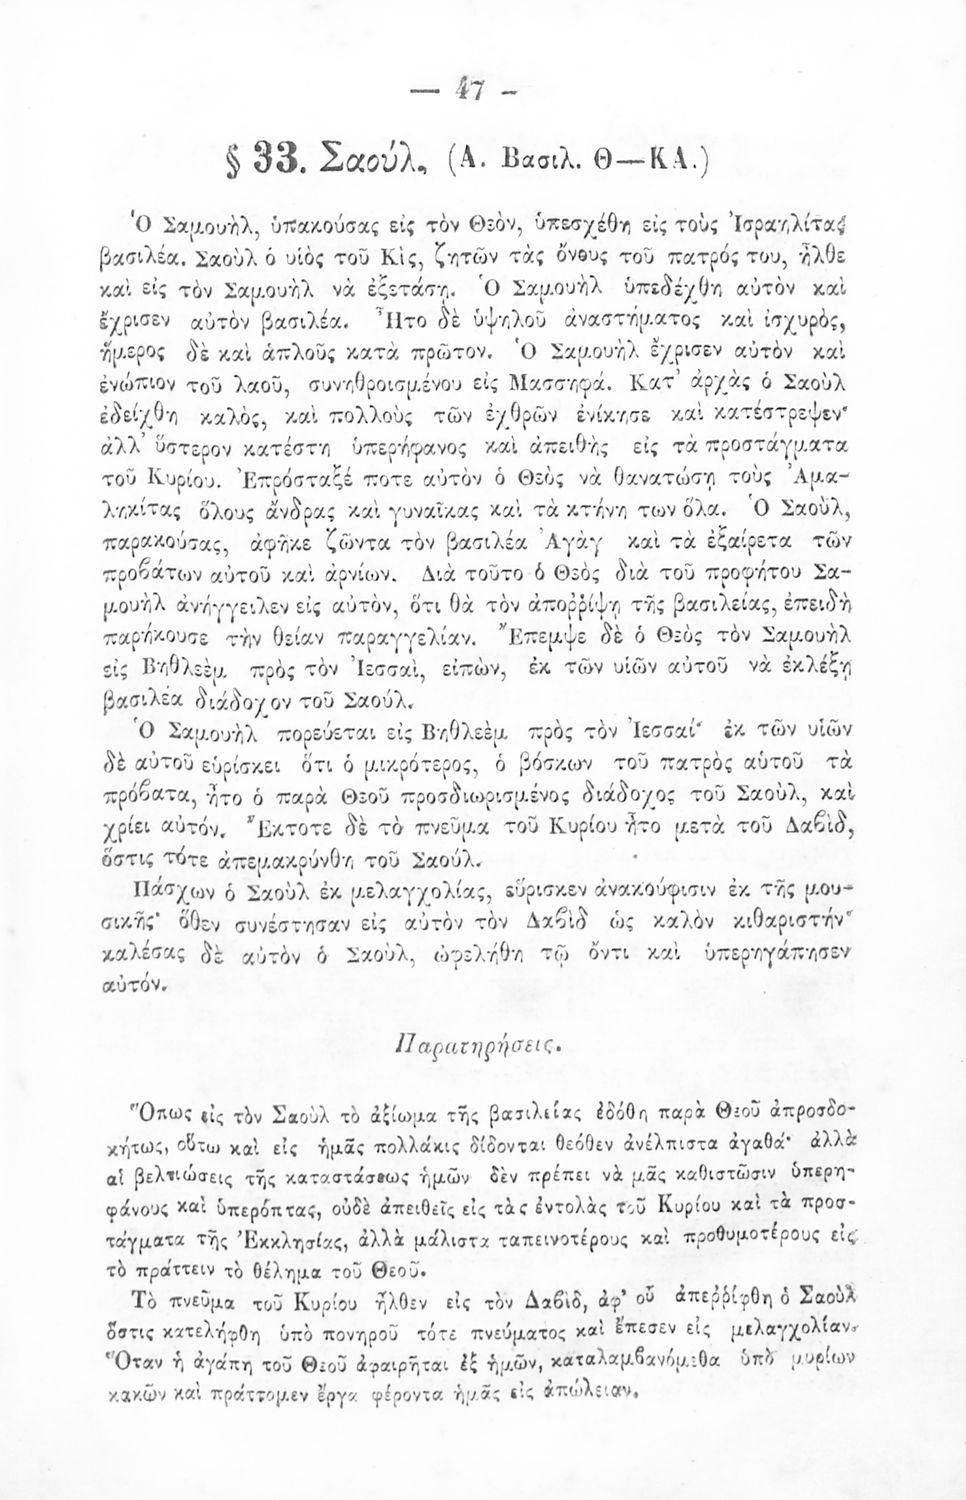 — 47 -
§ 33. Σαούλ, (Α. Βασιλ. Θ—ΚΑ.)
Ὁ Σαμουὴλ, ὑπακούσας εἰς τὸν Θεὸν, ὑπεσχέθη εἰς τοὺς Ἰσραηλίτας
βασιλέα. Σαοὺλ ὁ υἱὸς τοῦ Κὶς, ζητῶν τὰς ὄνους τοῦ πατρός του, ἦλθε
καὶ εἰς τὸν Σαμουὴλ νὰ ἐξετάσῃ. Ὁ Σαμουὴλ ὑπεδέχθη αὐτὸν καὶ
ἔχρισεν αὐτὸν βασιλέα. Ἦτο δὲ ὑψηλοῦ ἀναστήματος καὶ ἰσχυρὸς,
ἥμερος δὲ καὶ ἁπλοῦς κατὰ πρῶτον. Ὁ Σαμουὴλ ἔχρισεν αὐτὸν καὶ
ἐνώπιον τοῦ λαοῦ, συνηθροισμένου εἰς Μασσηφά. Κατ’ ἀρχὰς ὁ Σαοὺλ
ἐδείχθη καλὸς, καὶ πολλοὺς τῶν ἐχθρῶν ἐνίκησε καὶ κατέστρεψεν·
ἀλλ’ ὕστερον κατέστη ὑπερήφανος καὶ ἀπειθὴς εἰς τὰ προστάγματα
τοῦ Κυρίου. Ἐπρόσταξέ ποτε αὐτὸν ὁ Θεὸς νὰ θανατώσῃ τοὺς Ἀμα-
ληκίτας ὅλους ἄνδρας καὶ γυναῖκας καὶ τὰ κτήνη των ὅλα. Ὁ Σαοὺλ,
παρακούσας, ἀφῆκε ζῶντα τὸν βασιλέα Ἀγὰγ καὶ τὰ ἐξαίρετα τῶν
προβάτων αὐτοῦ καὶ ἀρνίων. Διὰ τοῦτο ὁ Θεὸς διὰ τοῦ προφήτου Σα-
μουὴλ ἀνήγγειλεν εἰς αὐτὸν, ὅτι θὰ τὸν ἀποῤῥίψῃ τῆς βασιλείας, ἐπειδὴ
παρήκουσε τὴν θείαν παραγγελίαν. Ἔπεμψε δὲ ὁ Θεὸς τὸν Σαμουὴλ
εἰς Βηθλεὲμ πρὸς τὸν Ἰεσσαὶ, εἰπὼν, ἐκ τῶν υἱῶν αὐτοῦ νὰ ἐκλέξῃ
βασιλέα διάδοχον τοῦ Σαούλ.
Ὁ Σαμουὴλ πορεύεται εἰς Βηθλεὲμ πρὸς τὸν Ἰεσσαί· ἐκ τῶν υἱῶν
δὲ αὐτοῦ εὑρίσκει ὅτι ὁ μικρότερος, ὁ βόσκων τοῦ πατρὸς αὑτοῦ τὰ
πρόβατα, ἦτο ὁ παρὰ Θεοῦ προσδιωρισμένος διάδοχος τοῦ Σαοὺλ, καὶ
χρίει αὐτόν. Ἔκτοτε δὲ τὸ πνεῦμα τοῦ Κυρίου ἦτο μετὰ τοῦ Δαβὶδ,
ὅστις τότε ἀπεμακρύνθη τοῦ Σαούλ.
Πάσχων ὁ Σαοὺλ ἐκ μελαγχολίας, εὕρισκεν ἀνακούφισιν ἐκ τῆς μου-
σικῆς· ὅθεν συνέστησαν εἰς αὐτὸν τὸν Δαβὶδ ὡς καλὸν κιθαριστήν·
καλέσας δὲ αὐτὸν ὁ Σαοὺλ, ὠφελήθη τῷ ὄντι καὶ ὑπερηγάπησεν
αὐτόν.
Παρατηρήσεις.
Ὅπως εἰς τὸν Σαοὺλ τὸ ἀξίωμα τῆς βασιλείας ἐδόθη παρὰ Θεοῦ ἀπροσδο-
κήτως, οὕτω καὶ εἰς ἡμᾶς πολλάκις δίδονται θεόθεν ἀνέλπιστα ἀγαθά· ἀλλὰ
αἱ βελτιώσεις τῆς καταστάσεως ἡμῶν δὲν πρέπει νὰ μᾶς καθιστῶσιν ὑπερη-
φάνους καὶ ὑπερόπτας, οὐδὲ ἀπειθεῖς εἰς τὰς ἐντολὰς τοῦ Κυρίου καὶ τὰ προσ-
τάγματα τῆς Ἐκκλησίας, ἀλλὰ μάλιστα ταπεινοτέρους καὶ προθυμοτέρους εἰς
τὸ πράττειν τὸ θέλημα τοῦ Θεοῦ.
Τὸ πνεῦμα τοῦ Κυρίου ἦλθεν εἰς τὸν Δαβὶδ, ἀφ’ οὗ ἀπεῤῥίφθη ὁ Σαοὺλ
ὅστις κατελήφθη ὑπὸ πονηροῦ τότε πνεύματος καὶ ἔπεσεν εἰς μελαγχολίαν.
Ὅταν ἡ ἀγάπη τοῦ Θεοῦ ἀφαιρῆται ἐξ ἡμῶν, καταλαμβανόμεθα ὑπὸ μυρίων
κακῶν καὶ πράττομεν ἔργα φέροντα ἡμᾶς εἰς ἀπώλειαν.